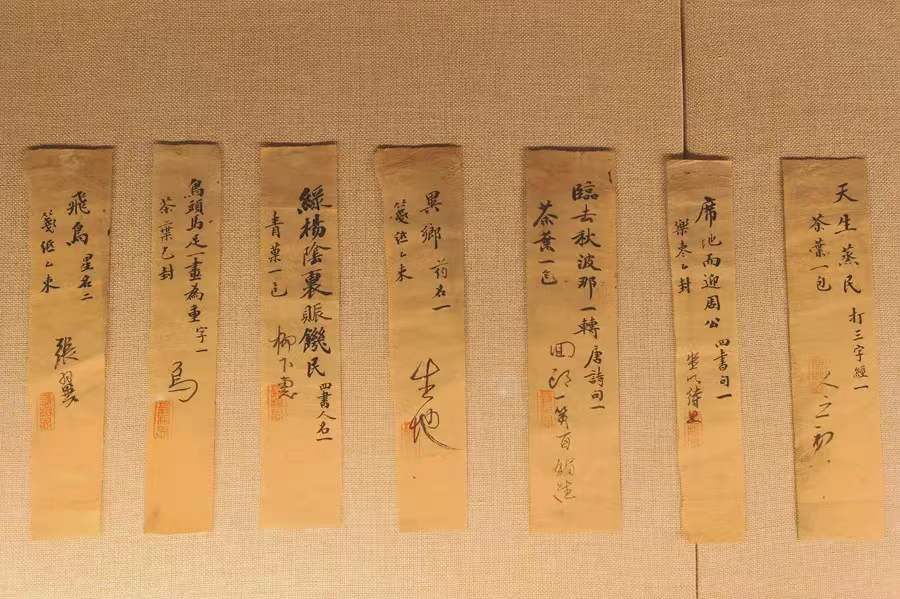 天生蒸民 打三字經一
茶葉一包
人之初
席地而迎周公 四書句一
乙封
坐以待旦
臨去秋波那一轉 唐詩句一
茶葉一包
回一笑百媚生
異鄉 药名一
箋紙乙束
生地
綠楊陰裏賑饑民 四書人名一
青菓一包
柳下惠
頭馬足一畫為重 字一
茶葉乙封
飛鳥 星名二
箋紙乙束
張翼